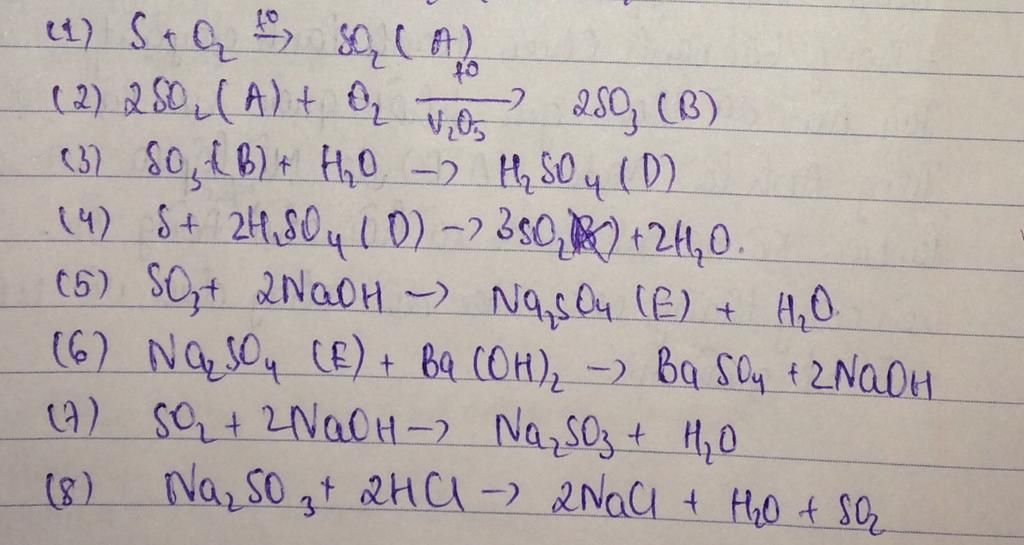 (1) S + O₂ →^{t0} SO₂ (A)
(2) 2SO₂ (A) + O₂ →^{t0}_{V₂O₅} 2SO₃ (B)
(3) SO₃ (B) + H₂O → H₂SO₄ (D)
(4) S + 2H₂SO₄ (D) → 3SO₂ + 2H₂O.
(5) SO₃ + 2NaOH → Na₂SO₄ (E) + H₂O.
(6) Na₂SO₄ (E) + Ba(OH)₂ → BaSO₄ + 2NaOH
(7) SO₂ + 2NaOH → Na₂SO₃ + H₂O
(8) Na₂SO₃ + 2HCl → 2NaCl + H₂O + SO₂